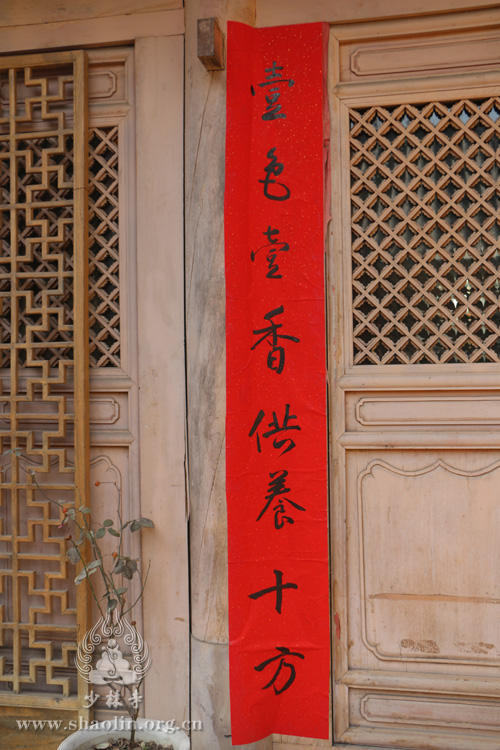 壹色壹香供養十方
少林寺
www.shaolin.org.cn